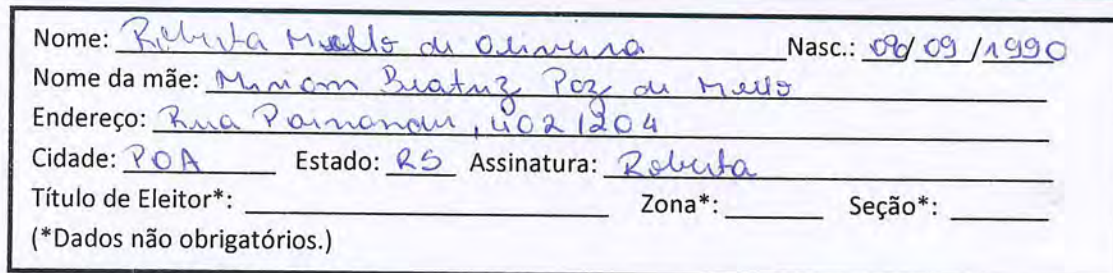 Nome: Roberta Mello de Oliveira Nasc.: 09/09/1990
Nome da mãe: Miriam Beatriz Poz de Mello
Endereço: Rua, 402/204
Cidade: POA Estado: RS Assinatura: Roberta
Título de Eleitor*: Zona*: Seção*:
(*Dados não obrigatórios.)